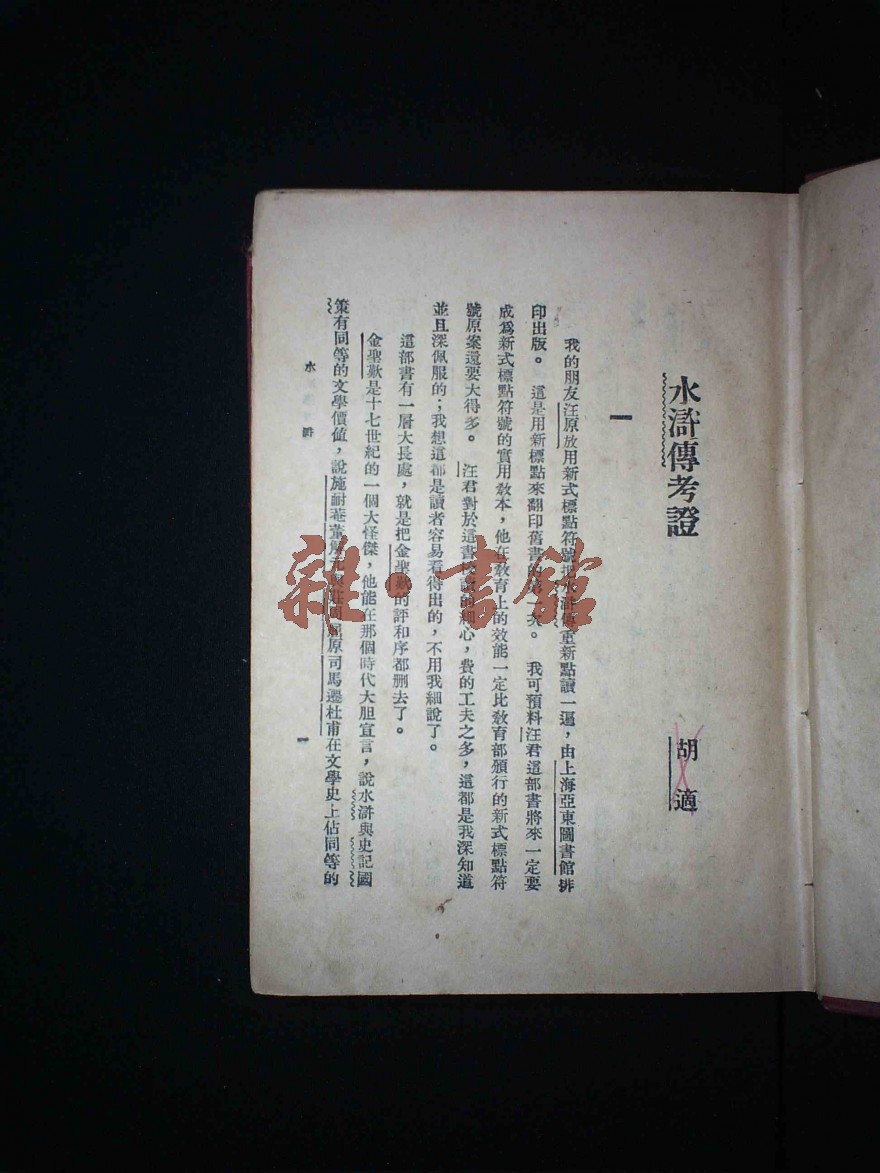 水滸傳考證
胡適
一
我的朋友汪原放用新式標點符號把水滸傳重新點讀一遍，由上海亞東圖書館排
印出版。這是用新標點來翻印舊書的第一次。我可預料汪君這部書將來一定要
成爲新式標點符號的實用教本，他在敎育上的效能一定比敎育部頒行的新式標點符
號原案還要大得多。汪君對於這書校讀的細心，費的工夫之多，這都是我深知道
並且深佩服的；我想這都是讀者容易看得出的，不用我細說了。
這部書有一層大長處，就是把金聖歎的評和序都删去了。
金聖歎是十七世紀的一個大怪傑，他能在那個時代大胆宣言，說水滸與史記國
策有同等的文學價值，說施耐菴董解元與莊周屈原司馬遷杜甫在文學史上佔同等的
水滸
一
雜·書館